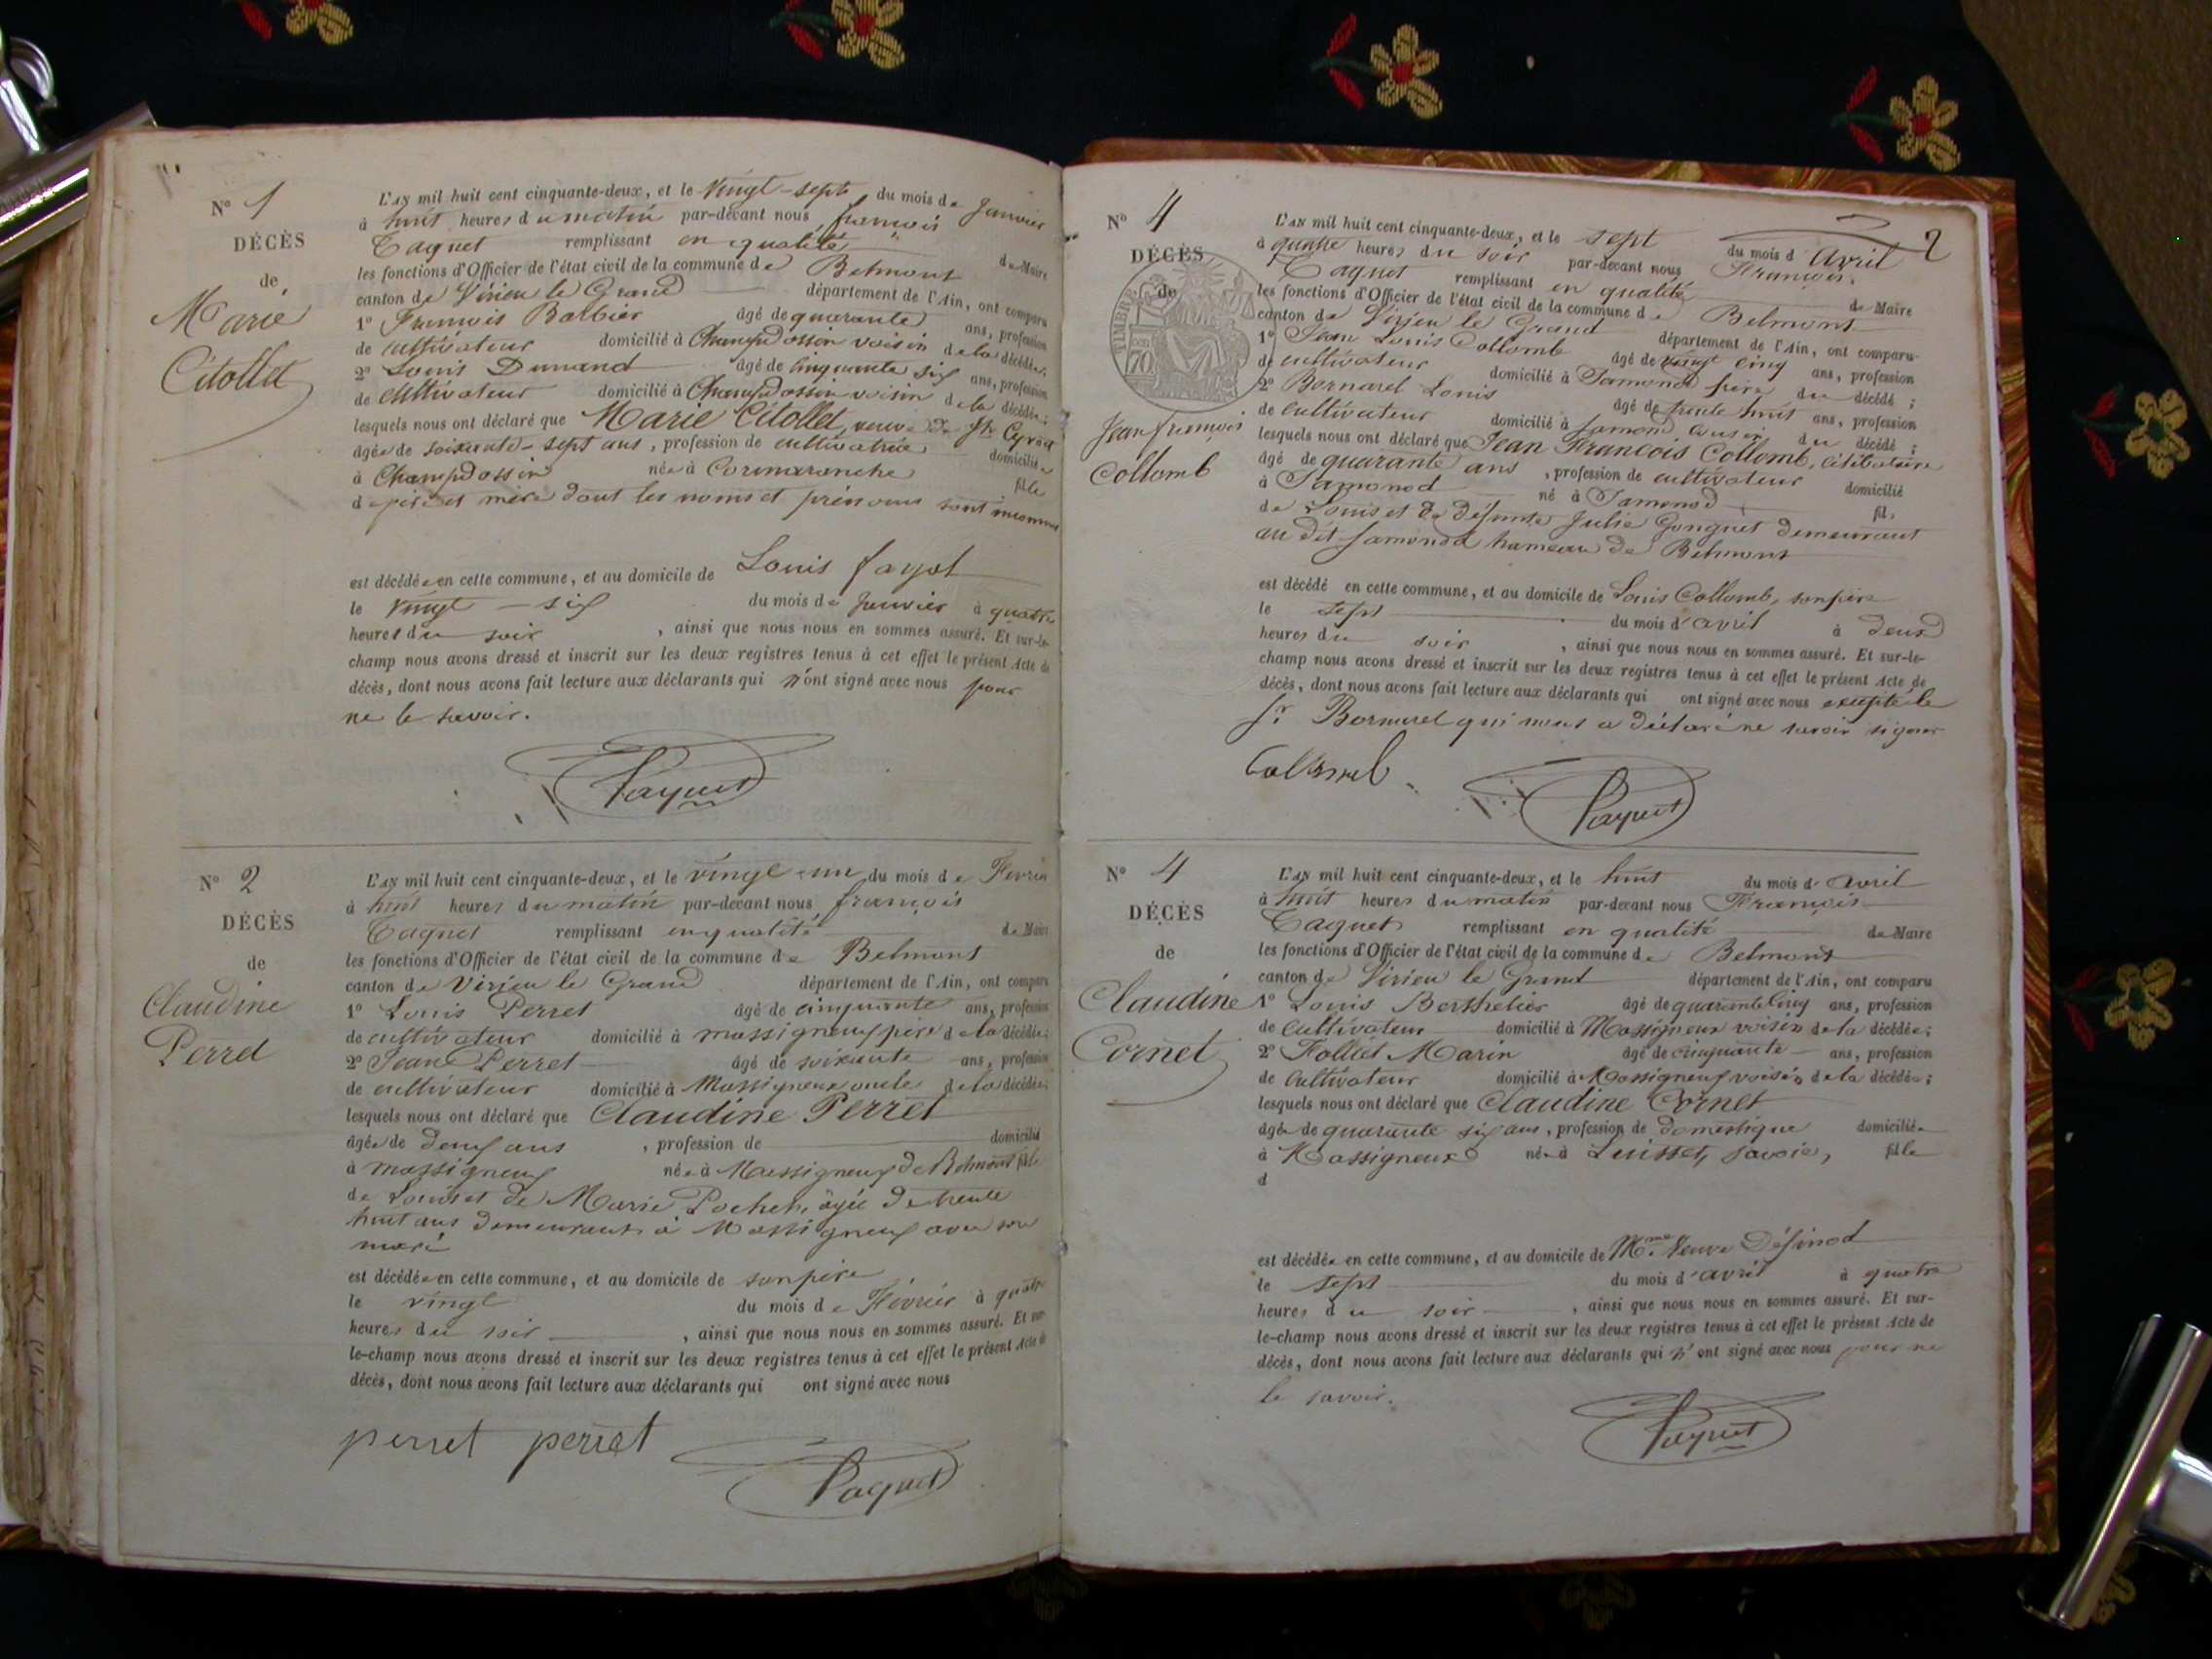 N° 1
DÉCÈS
de
Marie
Citollet
L'AN mil huit cent cinquante-deux, et le vingt-sept du mois de Janvier
à huit heures du matin par-devant nous françois
remplissant en qualité de Maire
les fonctions d'Officier de l'état civil de la commune de Belmont
canton de Virieu le Grand département de l'Ain, ont comparu
1° François Barbier âgé de quarante ans, profession
de cultivateur domicilié à Champdossin voisin de la décédée;
2° Louis Dunand âgé de cinquante six ans, profession
de cultivateur domicilié à Champdossin voisin de la décédée;
lesquels nous ont déclaré que Marie Citollet, veuve de
âgée de soixante-sept ans, profession de cultivatrice domiciliée
à Champdossin née à Cormaranche fille
de père et mère dont les noms et prénoms sont inconnus
est décédée en cette commune, et au domicile de Louis fayot
le vingt-six du mois de Janvier à quatre
heures du soir, ainsi que nous nous en sommes assuré. Et sur-le-
champ nous avons dressé et inscrit sur les deux registres tenus à cet effet le présent Acte de
décès, dont nous avons fait lecture aux déclarants qui n'ont signé avec nous pour
ne le savoir.
N° 2
DÉCÈS
de
Claudine
Perret
L'AN mil huit cent cinquante-deux, et le vingt-un du mois de Fevrier
à huit heures du matin par-devant nous françois
remplissant en qualité de Maire
les fonctions d'Officier de l'état civil de la commune de Belmont
canton de Virieu le Grand département de l'Ain, ont comparu
1° Louis Perret âgé de cinquante ans, profession
de cultivateur domicilié à massigneux père de la décédée;
2° Jean Perret âgé de soixante ans, profession
de cultivateur domicilié à Massigneux oncle de la décédée;
lesquels nous ont déclaré que Claudine Perret
âgée de deux ans, profession de domicilié
à massigneux née à Massigneux de Belmont fille
de Louis et de Marie Pochet, âgée de trente
huit ans demeurant à Massigneux avec son
mari
est décédée en cette commune, et au domicile de son père
le vingt du mois de Février à quatre
heures du soir, ainsi que nous nous en sommes assuré. Et sur-
le-champ nous avons dressé et inscrit sur les deux registres tenus à cet effet le présent Acte de
décès, dont nous avons fait lecture aux déclarants qui ont signé avec nous
perret perret
2
N° 4
DÉCÈS
de
TIMBRE
70
Jean françois
Collomb
L'AN mil huit cent cinquante-deux, et le sept du mois d'Avril
à quatre heures du soir par-devant nous François
remplissant en qualité de Maire
les fonctions d'Officier de l'état civil de la commune de Belmont
canton de Virieu le Grand département de l'Ain, ont comparu
1° Jean Louis Collomb âgé de vingt cinq ans, profession
de cultivateur domicilié à Samonod frère du décédé;
2° Bornarel Louis âgé de trente huit ans, profession
de cultivateur domicilié à Samonod cousin du décédé;
lesquels nous ont déclaré que Jean François Collomb, célibataire
âgé de quarante ans, profession de cultivateur domicilié
à Samonod né à Samonod fils
de Louis et de défunte Julie Gonguet demeurant
au dit Samonod hameau de Belmont
est décédé en cette commune, et au domicile de Louis Collomb, son père
le sept du mois d'avril à deux
heures du soir, ainsi que nous nous en sommes assuré. Et sur-le-
champ nous avons dressé et inscrit sur les deux registres tenus à cet effet le présent Acte de
décès, dont nous avons fait lecture aux déclarants qui ont signé avec nous excepté le
Sr Bornarel qui nous a déclaré ne savoir signer
Collomb
N° 4
DÉCÈS
de
Claudine
Cornet
L'AN mil huit cent cinquante-deux, et le huit du mois d'avril
à huit heures du matin par-devant nous François
remplissant en qualité de Maire
les fonctions d'Officier de l'état civil de la commune de Belmont
canton de Virieu le Grand département de l'Ain, ont comparu
1° Louis Berthelier âgé de quarante cinq ans, profession
de cultivateur domicilié à Massigneux voisin de la décédée;
2° Folliet Marin âgé de cinquante ans, profession
de cultivateur domicilié à Massigneux voisin de la décédée;
lesquels nous ont déclaré que Claudine Cornet
âgée de quarante six ans, profession de domestique domiciliée
à Massigneux née à savoie, fille
d
est décédée en cette commune, et au domicile de Mme Veuve
le sept du mois d'avril à quatre
heures du soir, ainsi que nous nous en sommes assuré. Et sur-
le-champ nous avons dressé et inscrit sur les deux registres tenus à cet effet le présent Acte de
décès, dont nous avons fait lecture aux déclarants qui n'ont signé avec nous pour ne
le savoir.